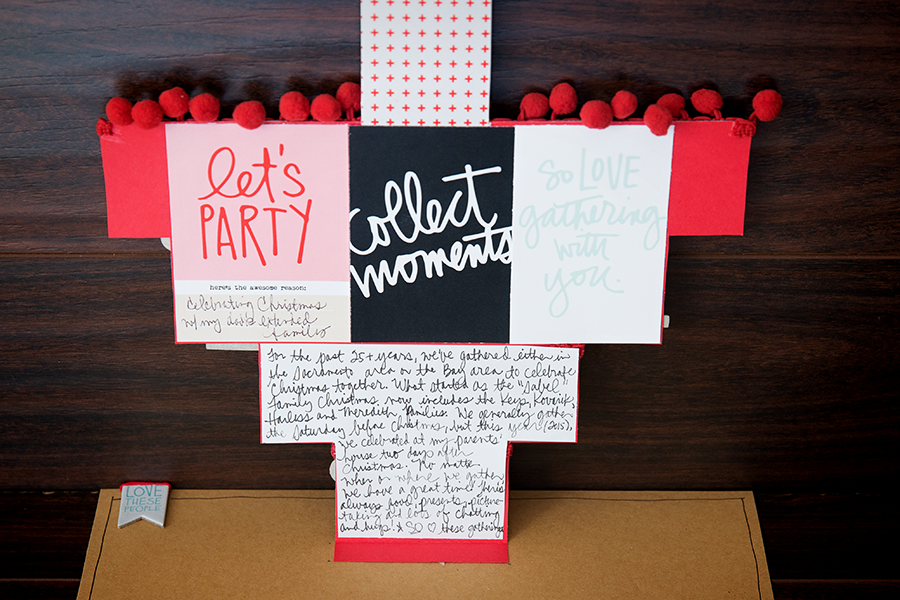 let's
PARTY
here's the awesome reason:
Celebrating Christmas
w/ my dad's extended
families
collect
moments
so LOVE
gathering
with
you.
For the past 25+ years, we've gathered either in
the Sacramento area or the Bay area to celebrate
Christmas together. What started as the "Sabel"
family Christmas, now includes the Keys,
Harless and Meredith families. We generally gather
the Saturday before Christmas, but this year (2015),
we celebrated at my parents'
house two days after
Christmas. No matter
when or where we gather
we have a great time! there's
always food, presents, picture-
taking and lots of chatting
and hugs! I SO ♡ these gatherings
LOVE
THESE
PEOPLE